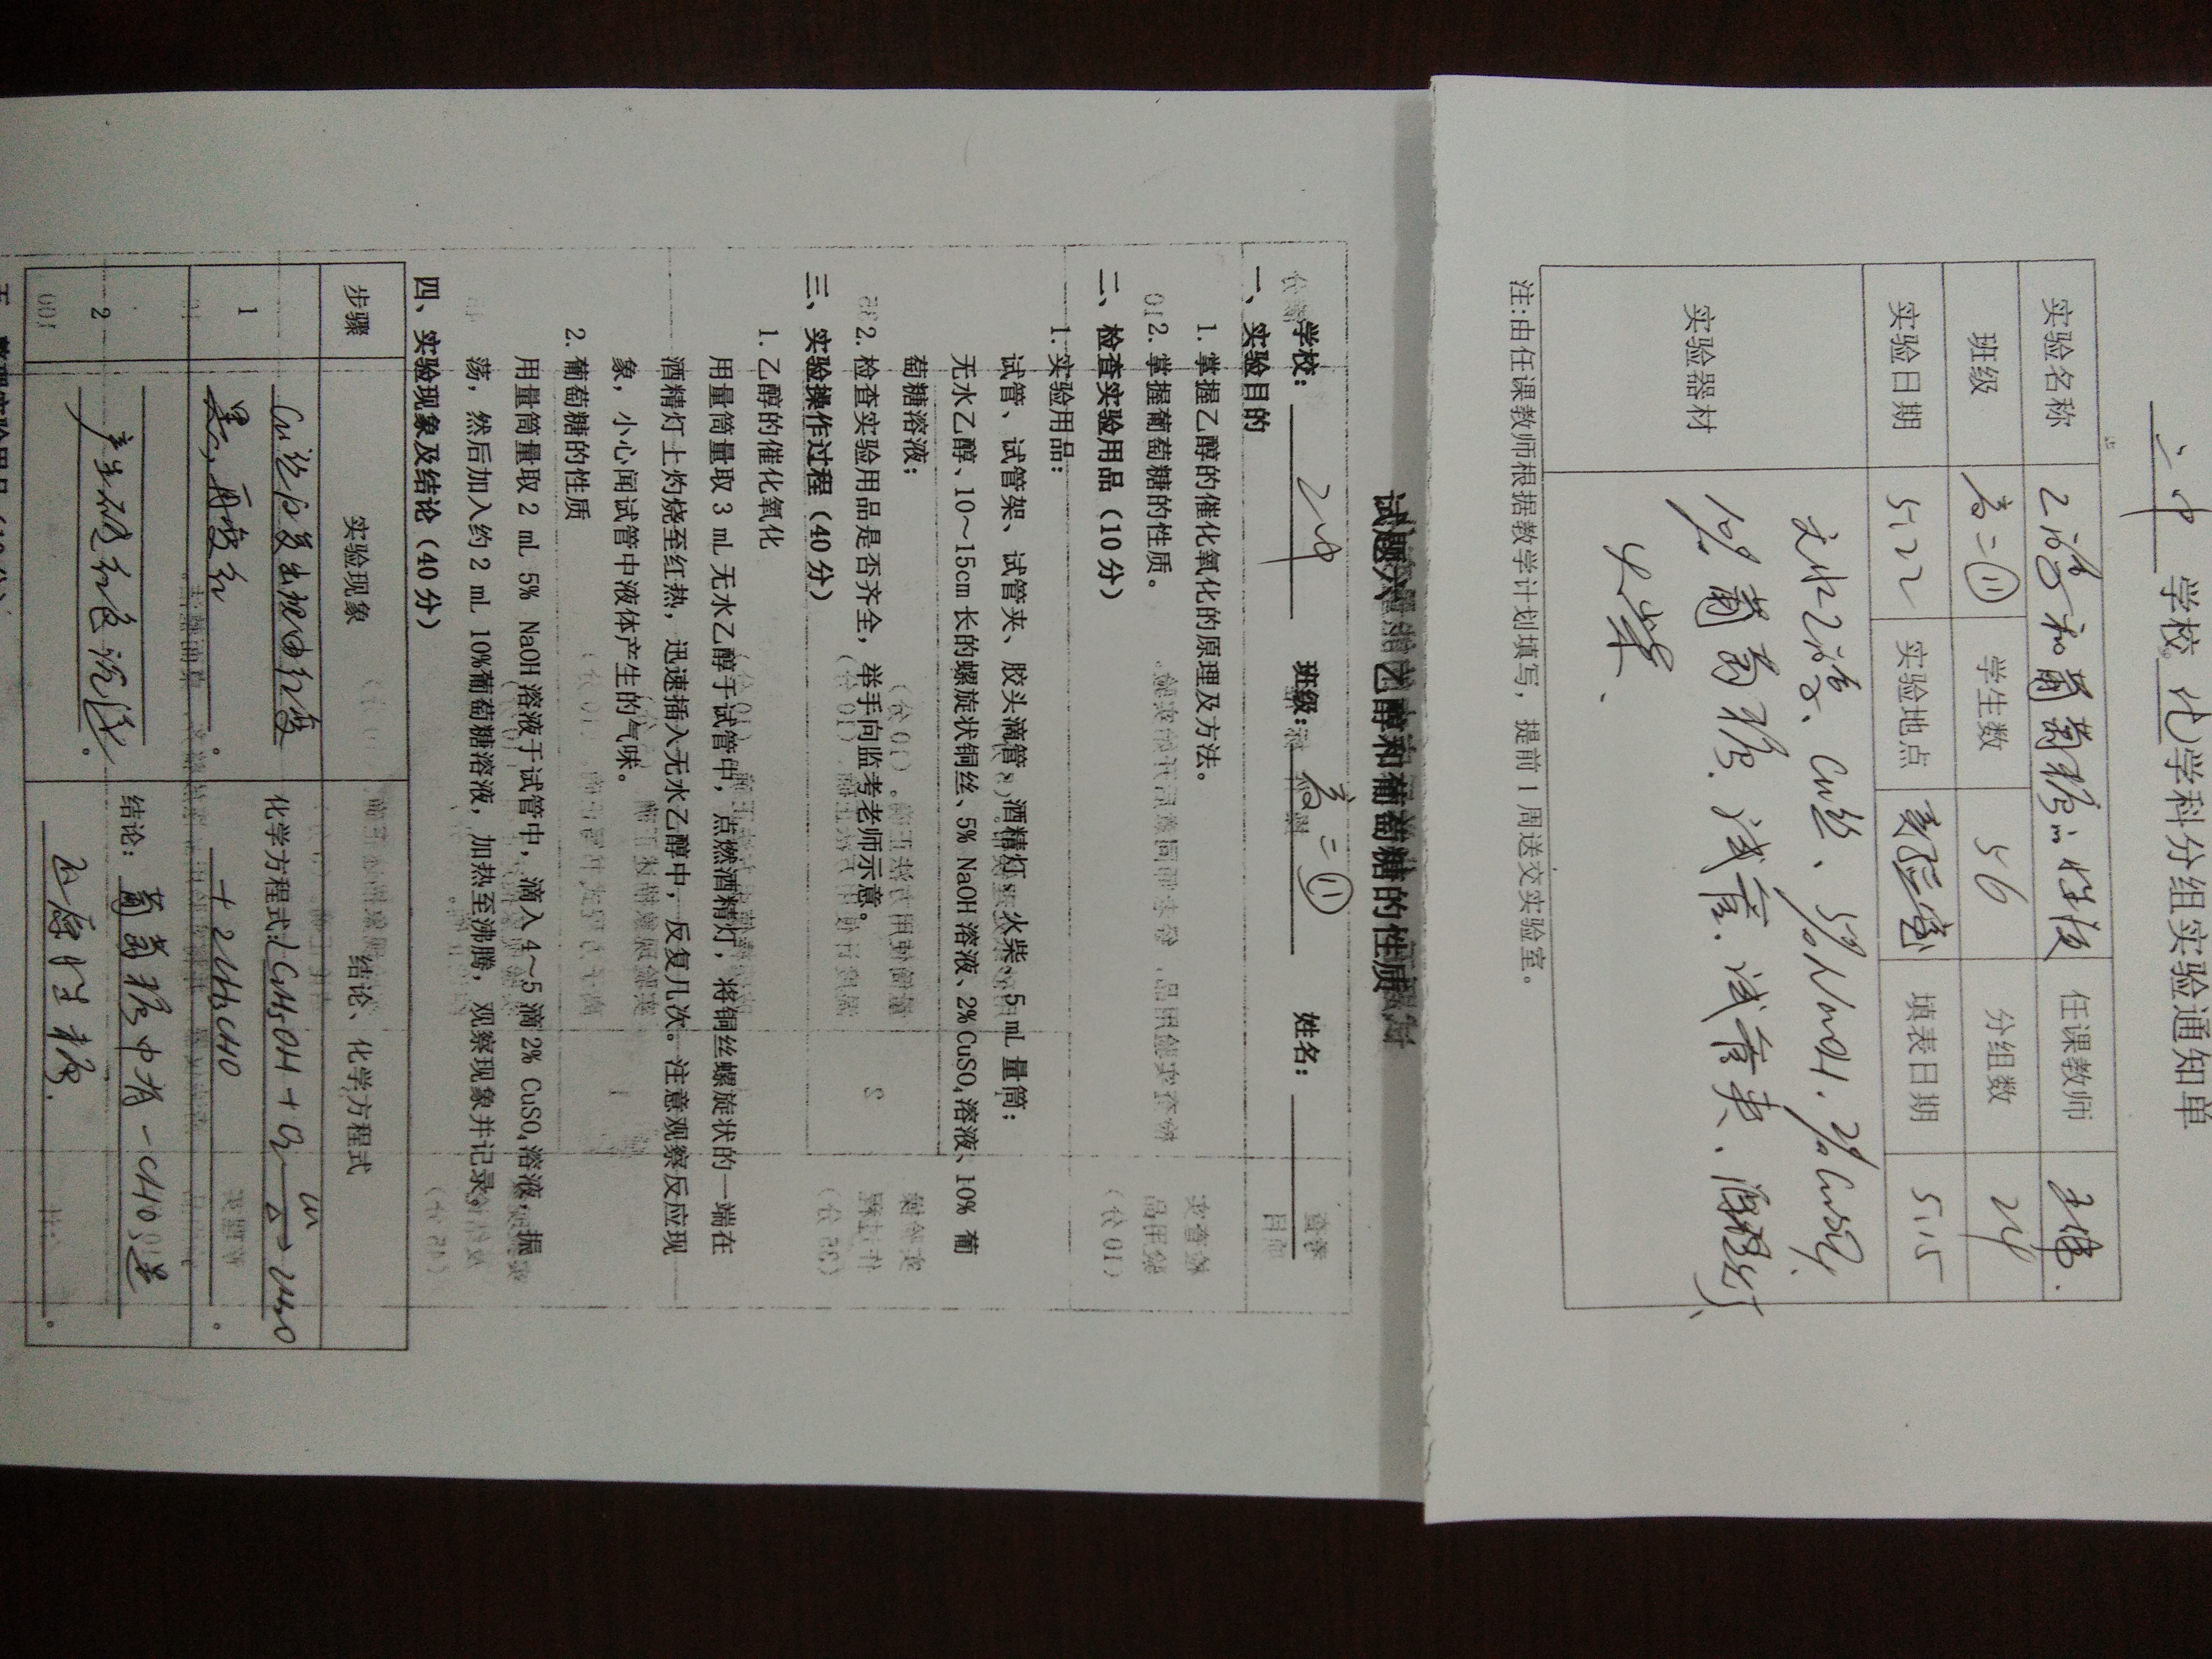 二中 学校 化 学科分组实验通知单
实验名称 乙醇和葡萄糖的性质 任课教师
班级 高二⑪ 学生数 56 分组数 24
实验日期 5.22 实验地点 实验室 填表日期 5.15
实验器材 无水乙醇、Cu丝、5%NaOH.2%CuSO4.
10%葡萄糖.试管.试管夹、酒精灯、
火柴、
注:由任课教师根据教学计划填写，提前1周送交实验室。
试题六 乙醇和葡萄糖的性质
学校: 二中 班级: 高二⑪ 姓名:
一、实验目的
1. 掌握乙醇的催化氧化的原理及方法。
2. 掌握葡萄糖的性质。
二、检查实验用品（10分）
1. 实验用品:
试管、试管架、试管夹、胶头滴管、酒精灯、火柴、5 mL 量筒;
无水乙醇、10～15cm 长的螺旋状铜丝、5% NaOH 溶液、2% CuSO₄溶液、10% 葡
萄糖溶液;
2. 检查实验用品是否齐全，举手向监考老师示意。
三、实验操作过程（40分）
1. 乙醇的催化氧化
用量筒量取 3 mL 无水乙醇于试管中，点燃酒精灯，将铜丝螺旋状的一端在
酒精灯上灼烧至红热，迅速插入无水乙醇中，反复几次。注意观察反应现
象，小心闻试管中液体产生的气味。
2. 葡萄糖的性质
用量筒量取 2 mL 5% NaOH 溶液于试管中，滴入 4～5 滴 2% CuSO₄溶液，振
荡，然后加入约 2 mL 10%葡萄糖溶液，加热至沸腾，观察现象并记录。
四、实验现象及结论（40分）
步骤 实验现象 结论、化学方程式
1 Cu丝反复出现由红变
黑，再变红。
化学方程式: 2C2H5OH + O2 Cu △→ 2H2O
+ 2CH3CHO。
2 产生砖红色沉淀。
结论: 葡萄糖中有-CHO 是
还原性糖。